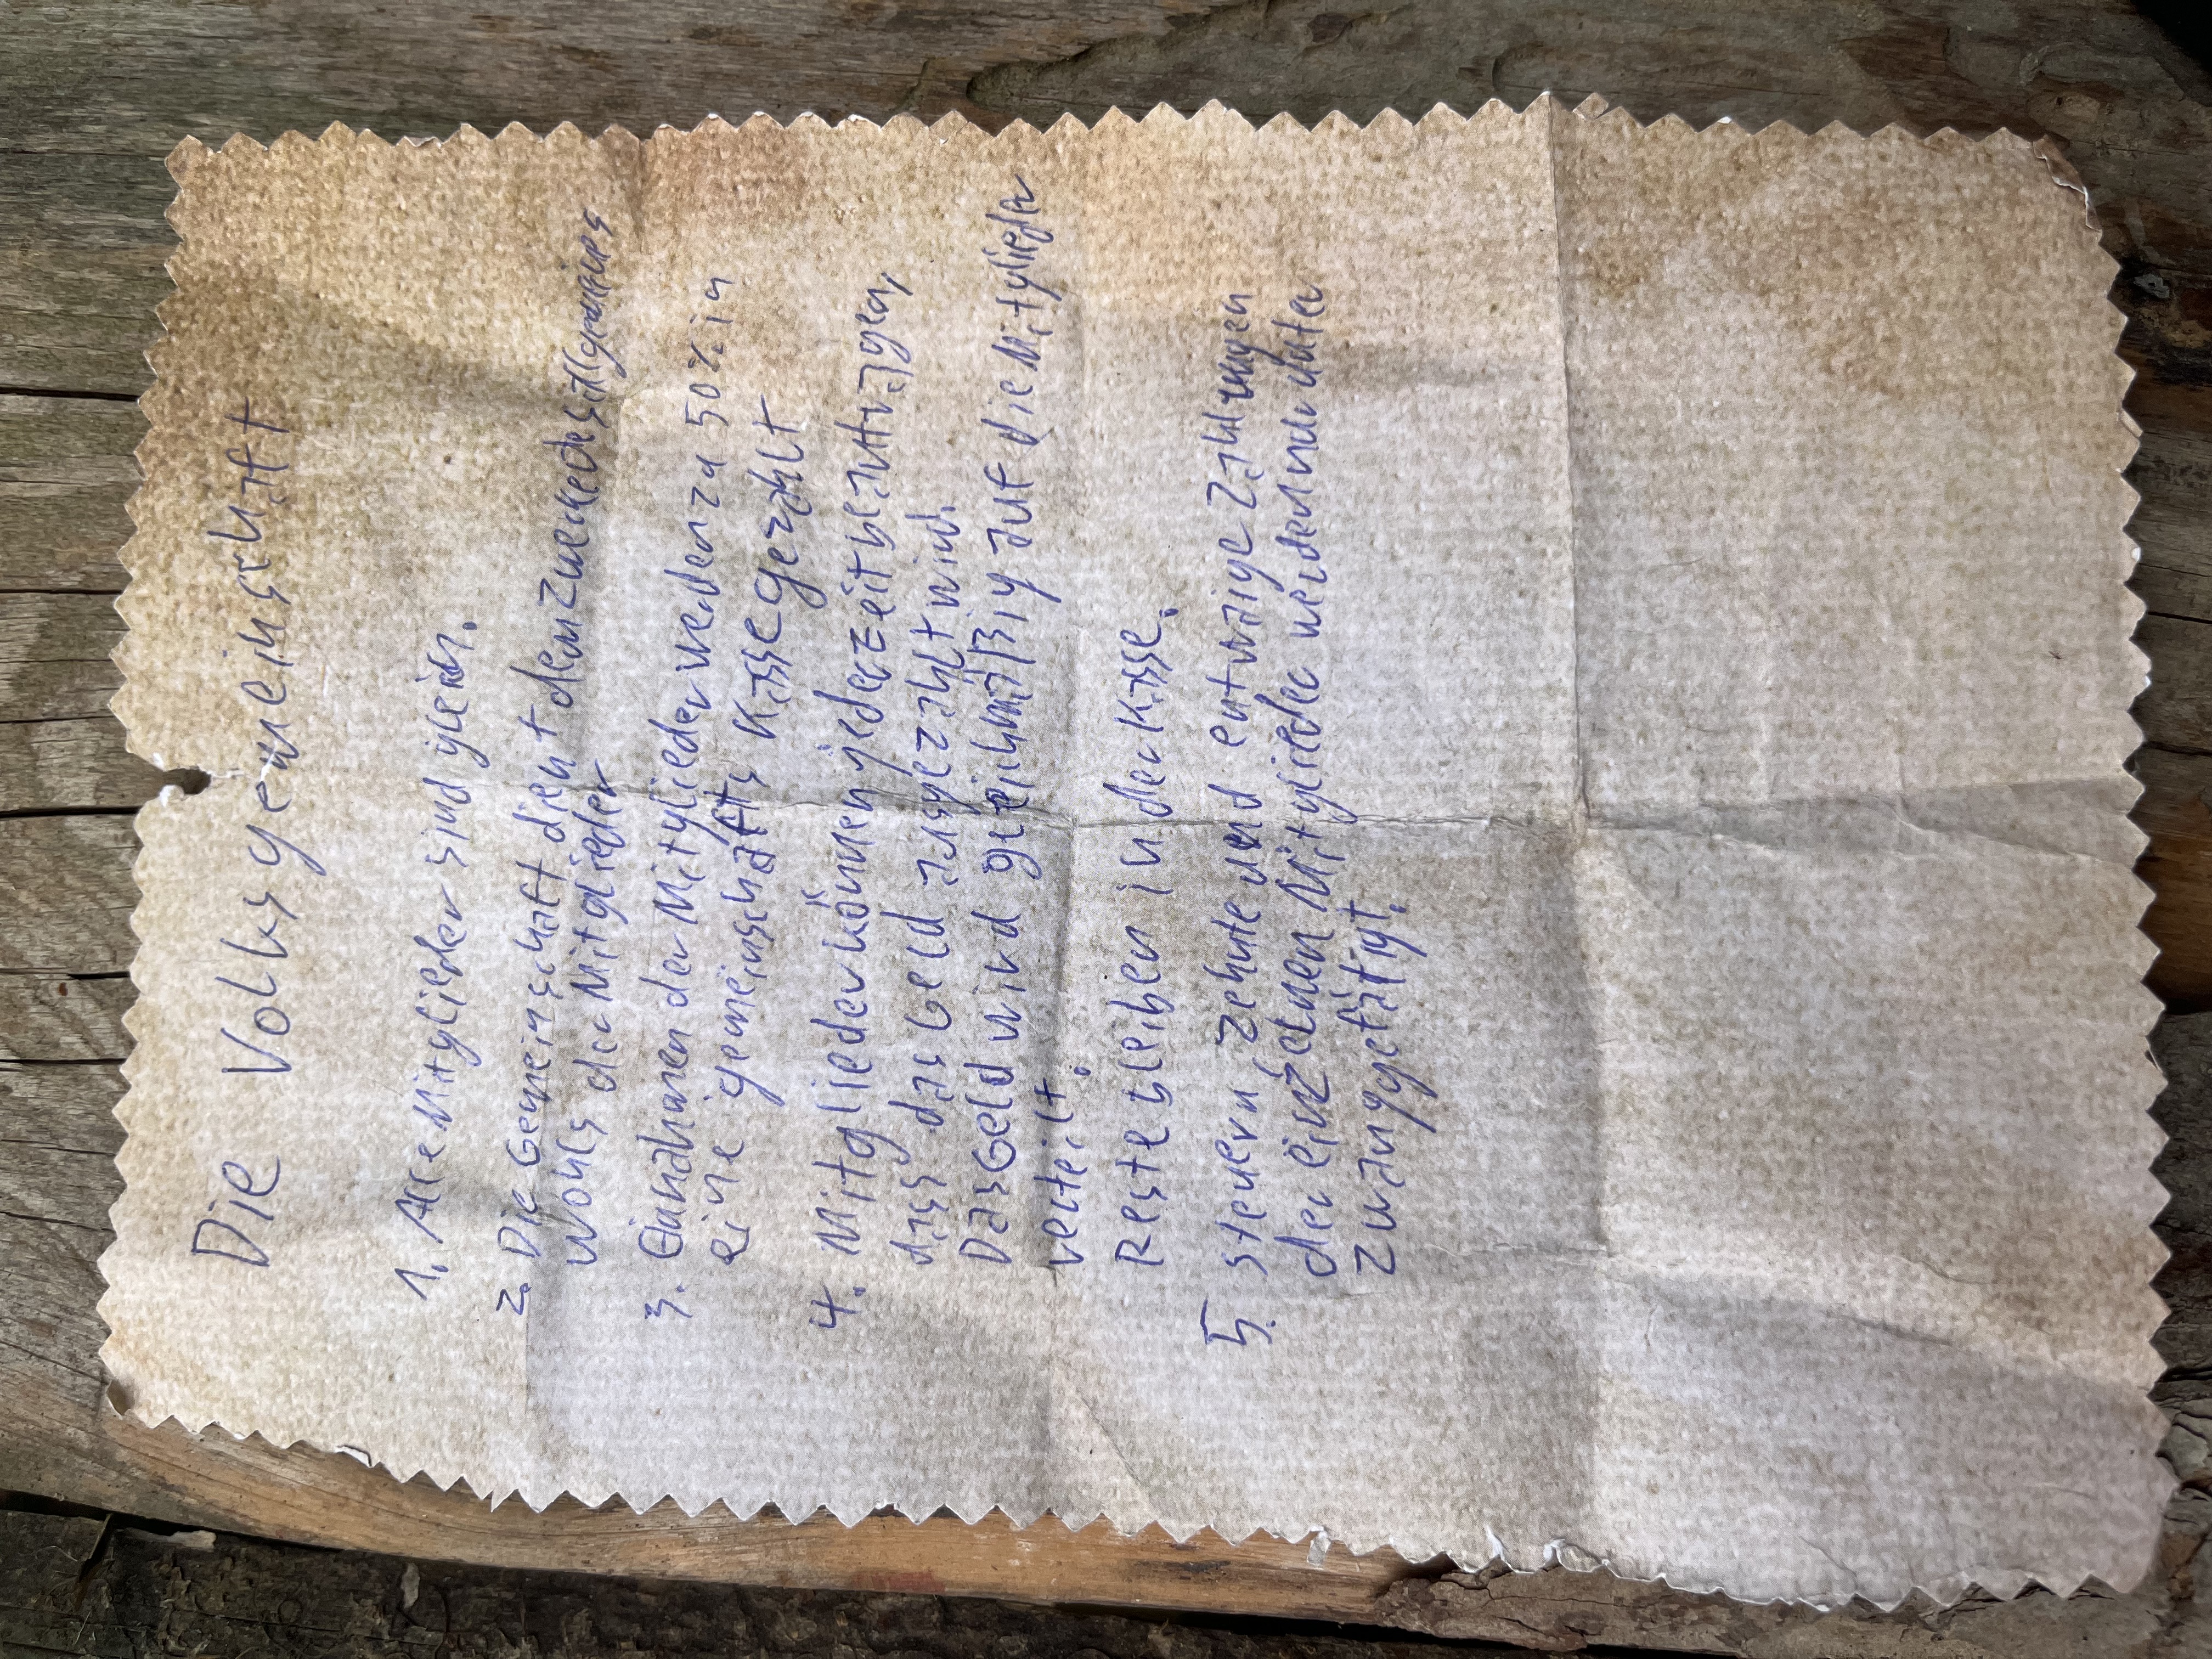 Die Volksgemeinschaft
1. Alle Mitglieder sind gleich.
2. Die Gemeinschaft dient dem Zwecke des
Wohls der Mitglieder
3. Einnahmen der Mitglieder werden za 50% in
eine gemeinschafts Kasse gezahlt
4. Mitglieder können jederzeit beauftragen,
dass das Geld ausgezahlt wird.
Das Geld wird gleichmäßig auf die Mitglieder
verteilt.
Reste bleiben in der Kasse.
5. Steuern, Zehnte und entwaige Zahlungen
der einzelnen Mitglieder werden darunter
zwanggetätigt.